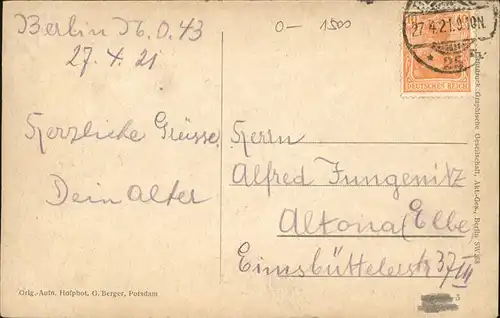 Berlin N.O. 43
27.4.21
0- 1500
27.4.21.9-10N.
* 25
DEUTSCHES REICH
Herzliche Grüsse
Dein Alter
Herrn
Alfred Jungenitz
Altona (Elbe
Eimsbüttelerstr 37 III
Orig.-Aufn. Hofphot. G. Berger, Potsdam
Graphische Gesellschaft, Akt.-Ges., Berlin SW 68
5